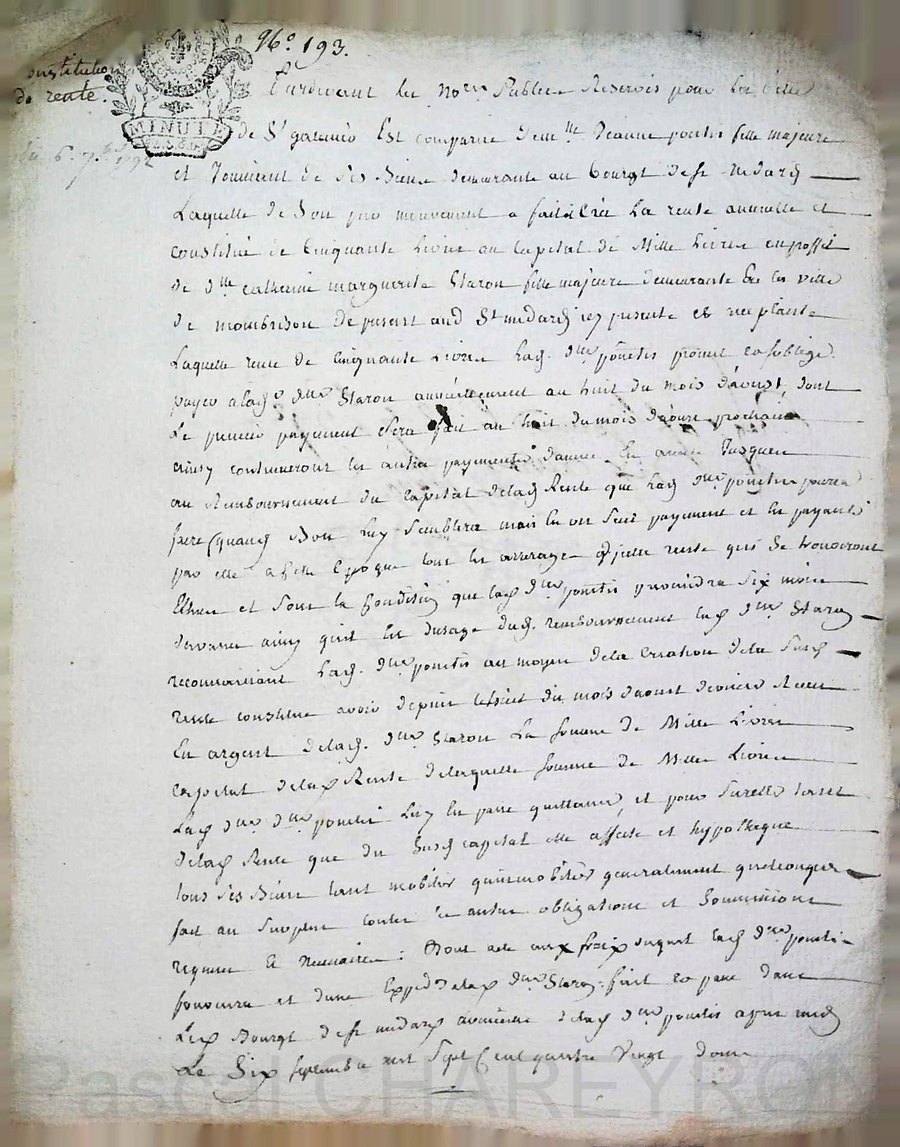 No. 193.
Constitution
de rente.
MINUTE
du 6. 7bre 1792
Pardevant les nores Publics Reservés pour la ville
de St galmier Est comparue demlle Jeanne pontis fille majeure
et Jouissant de ses Biens demeurante au bourgt de st medard
Laquelle de son gré mouvement a fait & Créé La rente annuelle et
constitué de Cinquante Livres au Capital de Mille Livres
de dlle catherine marguerite Staron fille majeure demeurante En la ville
de montbrison de present aud St medard icy presente et acceptante
Laquelle rente de Cinquante Livres Lad. dlle pontis promet et s'oblige
payer a lad. dlle Staron annuellement au huit du mois d'aoust, dont
Le premier payement sera fait au huit du mois d'aoust prochain
ainsy continueront les autres payements d'année En année Jusques
au Remboursement du Capital de lad Rente que Lad dlle pontis pourra
faire quand Bon Luy semblera mais en un seul payement et en payant
par elle a cette Epoque tout les arrerages de cette rente qui se trouveront
Echus et sous la Condition que lad dlle pontis previendra six mois
davance ainsy qu'il est d'usage dud. remboursement lad dlle Staron
reconnaissant Lad. dlle pontis au moyen de la Creation de la susd
rente constituée avoir depuis le huit du mois d'aoust dernier Reçu
En argent de lad. dlle Staron La somme de Mille Livres
capital de lad Rente de laquelle somme de Mille Livres
Lad dlle pontis Luy En passe quittance, et pour sureté tant
de lad Rente que du susd capital elle affecte et hypotheque
tous ses Biens tant mobiliers qu'immobiliers generalement quelconques
fait au surplus toutes les autres obligations et soumissions
requises & necessaires: Dont acte aux frais duquel lad dlle pontis
fournira et d'une Expedon a lad dlle Staron: fait et passé dans
Led Bourgt de st medard domicile de lad dlle pontis apres midy
Le Six septembre mil sept Cent quatre vingt douze
Pascal CHAREYRON